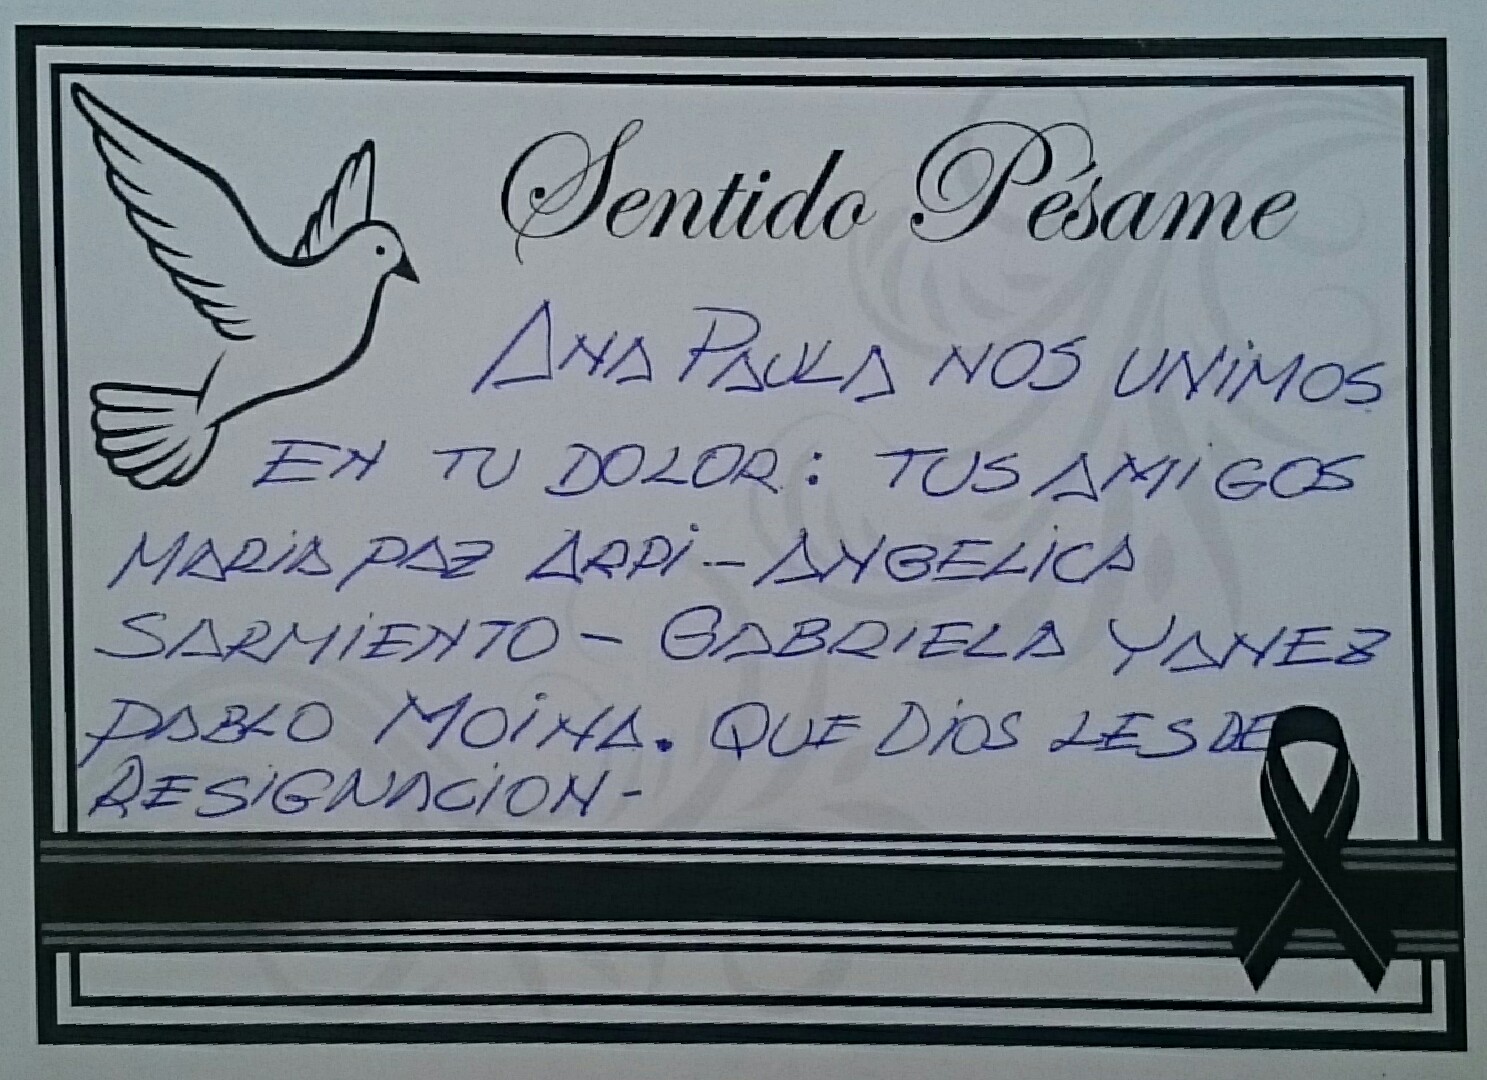 Sentido Pésame
ANA PAULA NOS UNIMOS
EN TU DOLOR: TUS AMIGOS
MARIA PAZ ARPI - ANGELICA
SARMIENTO - GABRIELA YANEZ
PABLO MOINA. QUE DIOS LES DE
RESIGNACION-